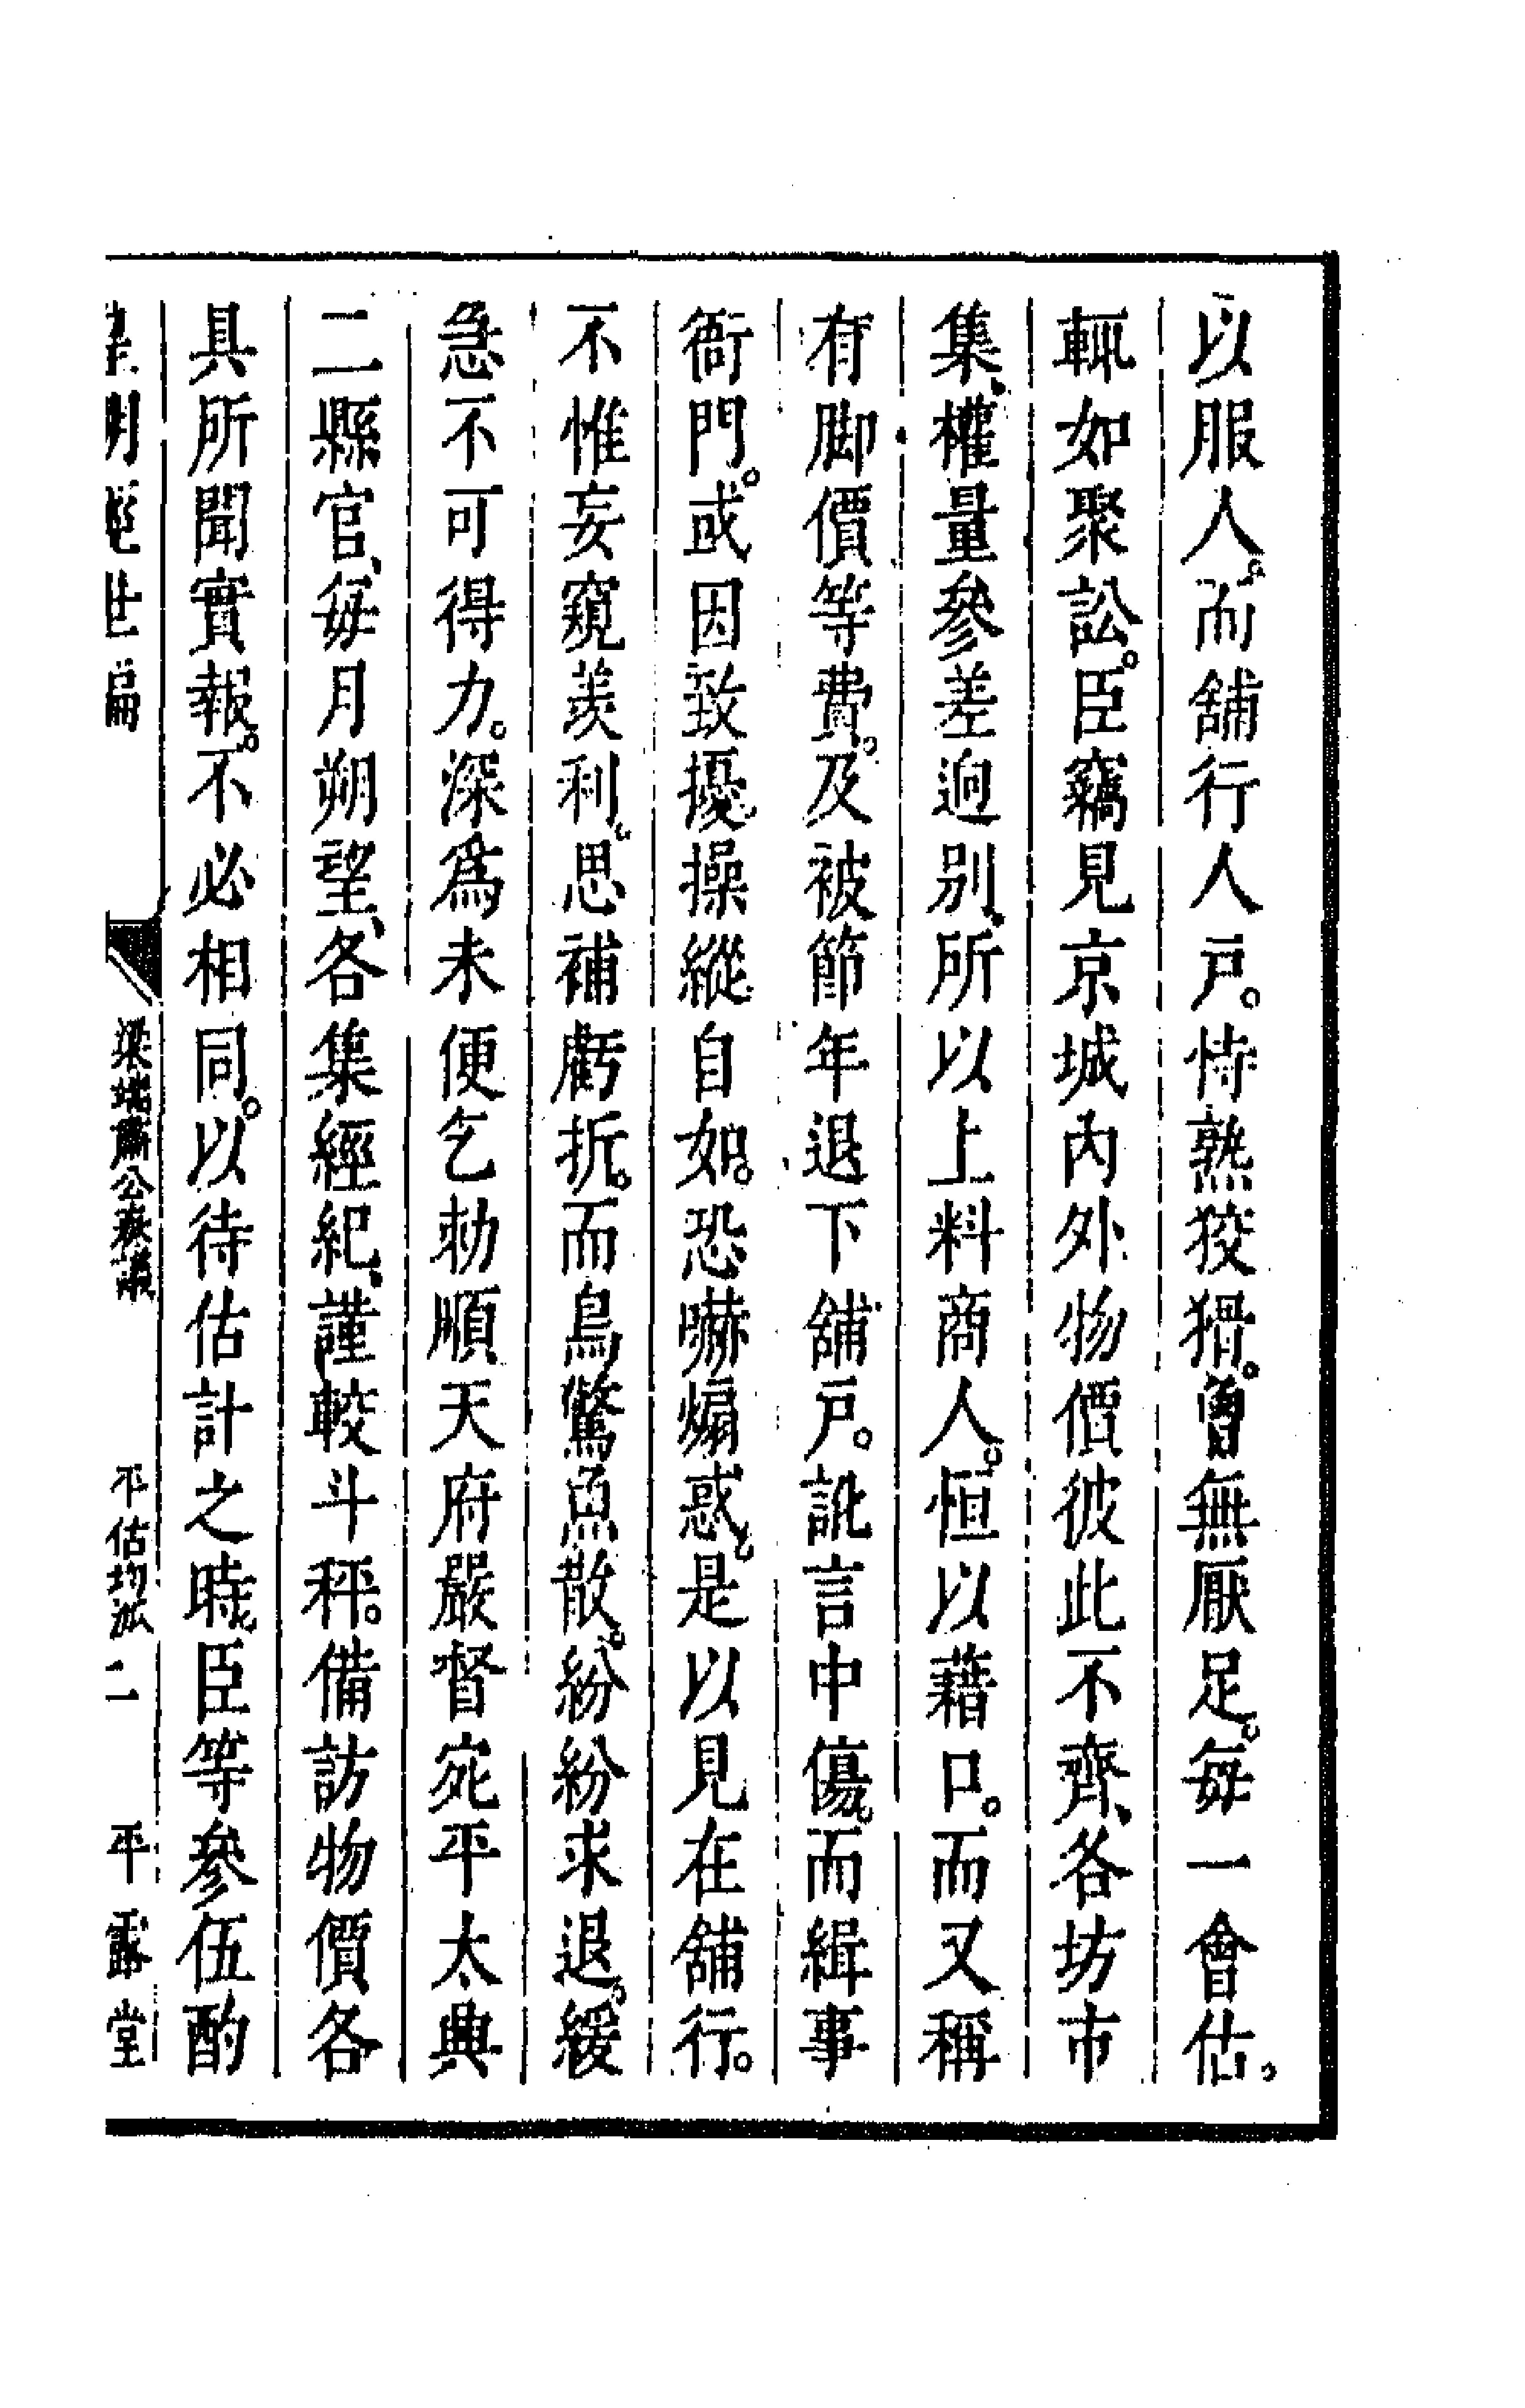 以服人。而舖行人戶。恃熟狡猾。曾無厭足。每一會估、
輒如聚訟。臣竊見京城內外物價彼此不齊、各坊市
集、權量參差逈別、所以上料商人。恒以藉口。而又稱
有脚價等費。及被節年退下舖戶。訛言中傷。而緝事
衙門。或因致擾。操縱自如。恐嚇煽惑。是以見在舖行。
不惟妄窺羨利。思補虧折。而鳥驚魚散。紛紛求退。緩
急不可得力。深爲未便乞勑順天府嚴督宛平太興
二縣官、每月朔望、各集經紀、謹較斗秤。備訪物價各
具所聞實報。不必相同。以待估計之時。臣等參伍酌
皇明經世編 梁端肅公奏議 平估均派 二 平露堂